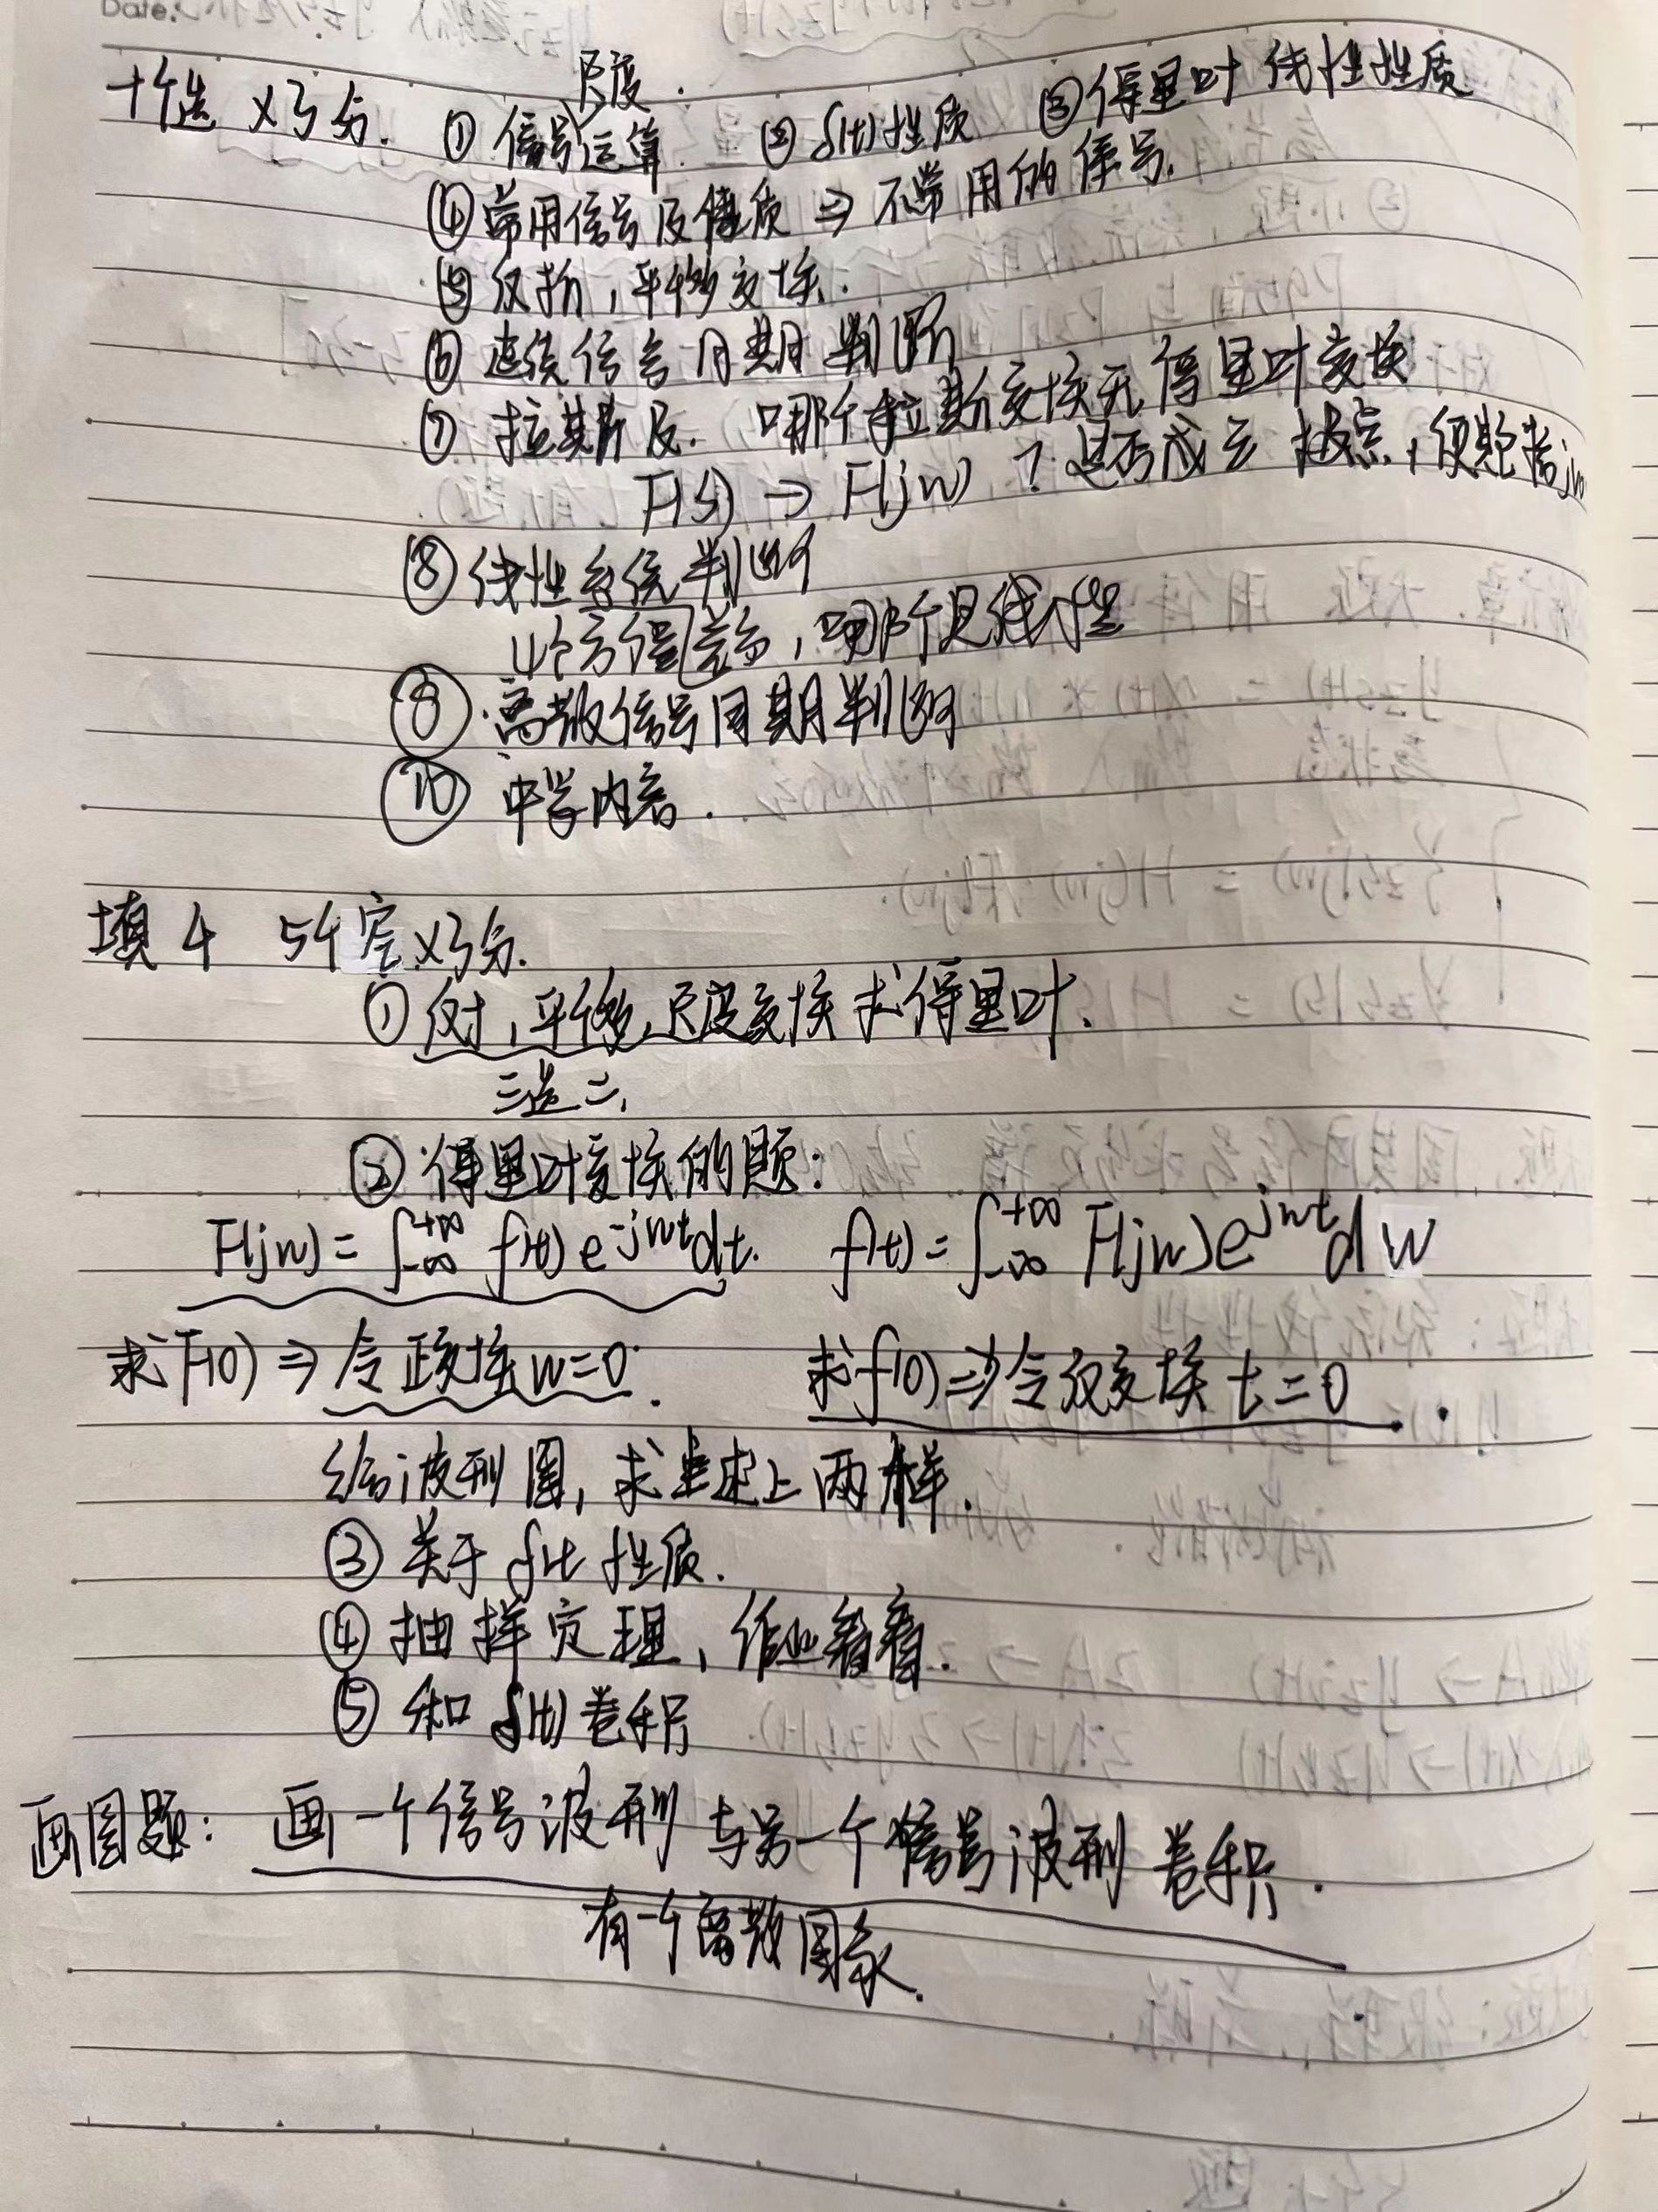 Date.
十个选 ×3分. ① 信号运算 尺度. ② δ(t)性质 ③ 傅里叶 线性性质
④ 常用信号及性质 ⇒ 不常用的信号.
⑤ 反折, 平移变换.
⑥ 连续信号周期判断
⑦ 拉其斯反. 哪个拉斯变换无傅里叶变换
F(s) → F(jw) ? 是否成立 极点, 包括
⑧ 线性系统判断
4个方程差分, 哪个是线性
⑨ 离散信号周期判断
⑩ 中学内容.
填 4 5个空×3分.
① 反折, 平移, 尺度变换求傅里叶.
三选二,
② 傅里叶变换的题:
F(jw) = ∫_{-∞}^{+∞} f(t) e^{-jwt} dt. f(t) = ∫_{-∞}^{+∞} F(jw) e^{jwt} dw
求F(0) ⇒ 令正变换w=0. 求f(0) ⇒ 令反变换 t=0.
给波形图, 求上两样.
③ 关于 δ(t) 性质.
④ 抽样定理, 作业看看.
⑤ 和 δ(t) 卷积
画图题: 画一个信号波形 与另一个信号波形 卷积.
有一个离散图象.